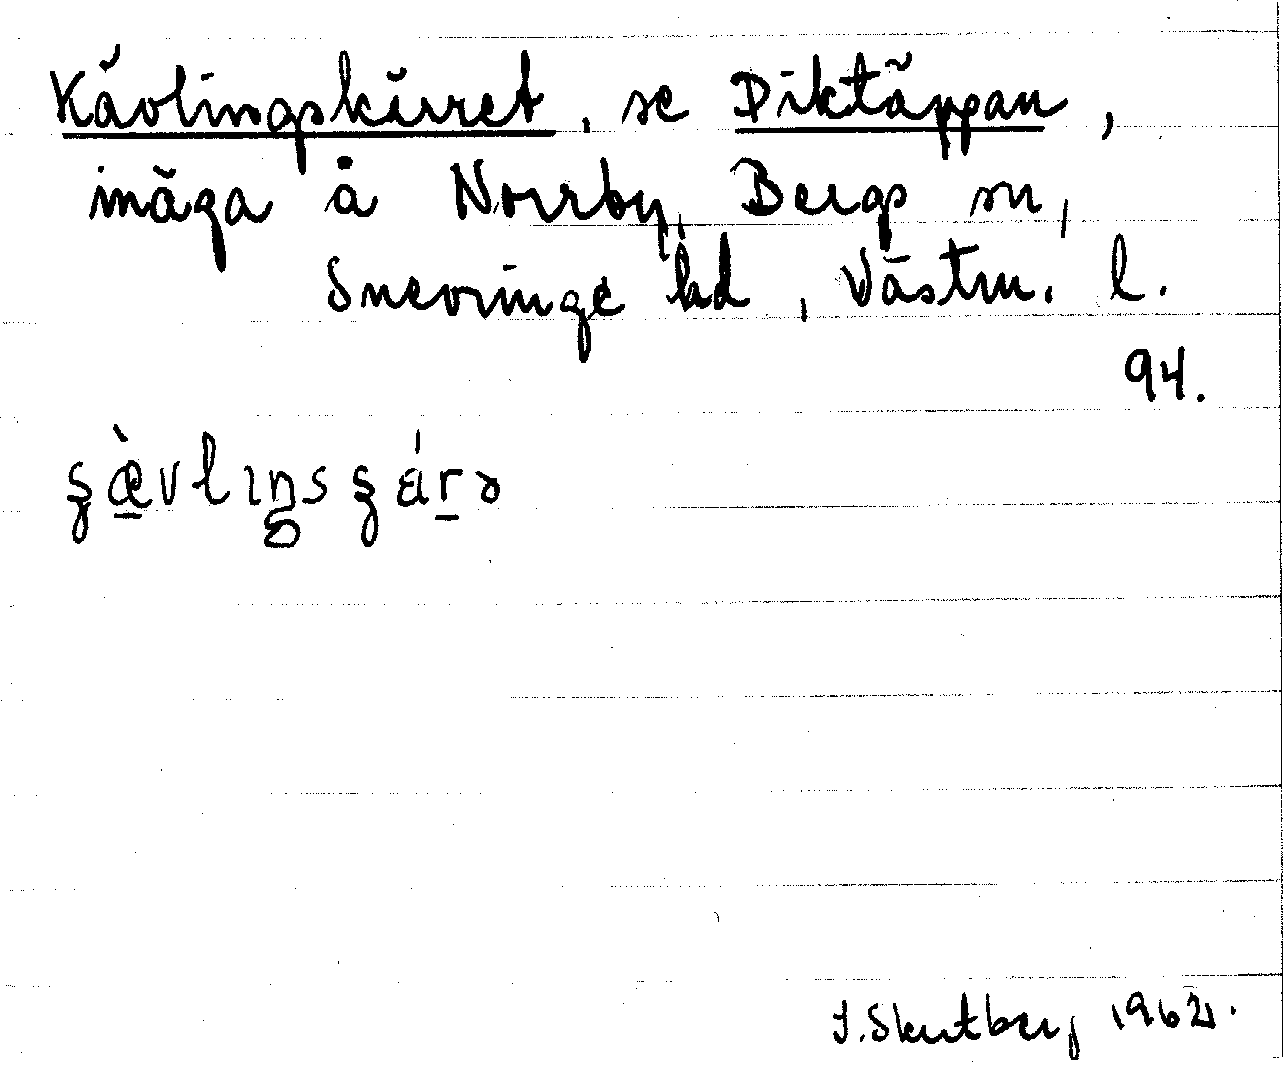 Kävlingskärret, se Diktäppan,
inäga å Norrby, Bergs sn,
Snevringe hd, Västm. l.
94.
I. Skutberg 1962.